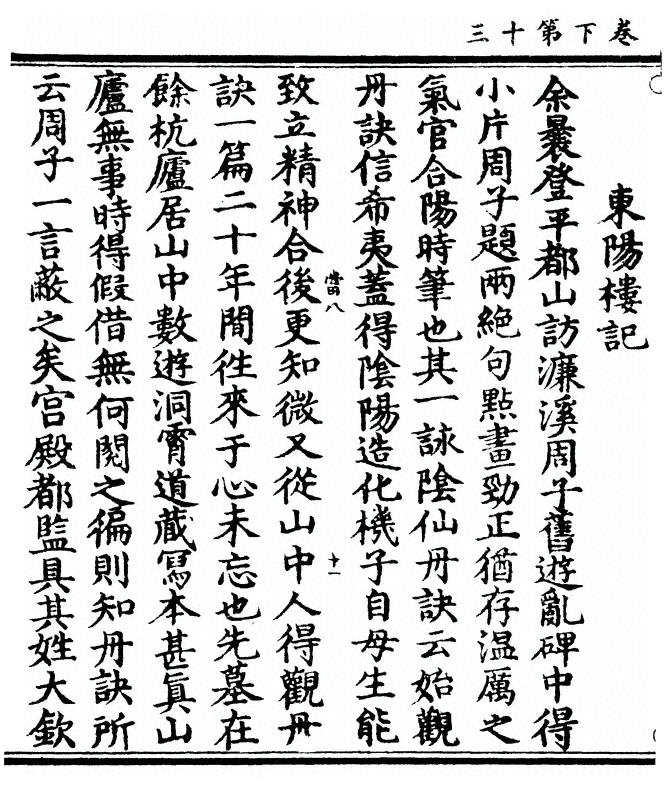 卷下第十三
東陽樓記
余曩登平都山訪濂溪周子舊遊亂碑中得
小片周子題兩絶句點畫勁正猶存温厲之
氣官合陽時筆也其一詠陰仙丹訣云始觀
丹訣信希夷蓋得陰陽造化機子自母生能
八
十一
致立精神合後更知微又從山中人得觀丹
訣一篇二十年間徃來于心未忘也先墓在
餘杭廬居山中數遊洞霄道藏寫本甚眞山
廬無事時得假借無何閱之徧則知丹訣所
云周子一言蔽之矣宫殿都監具其姓大欽